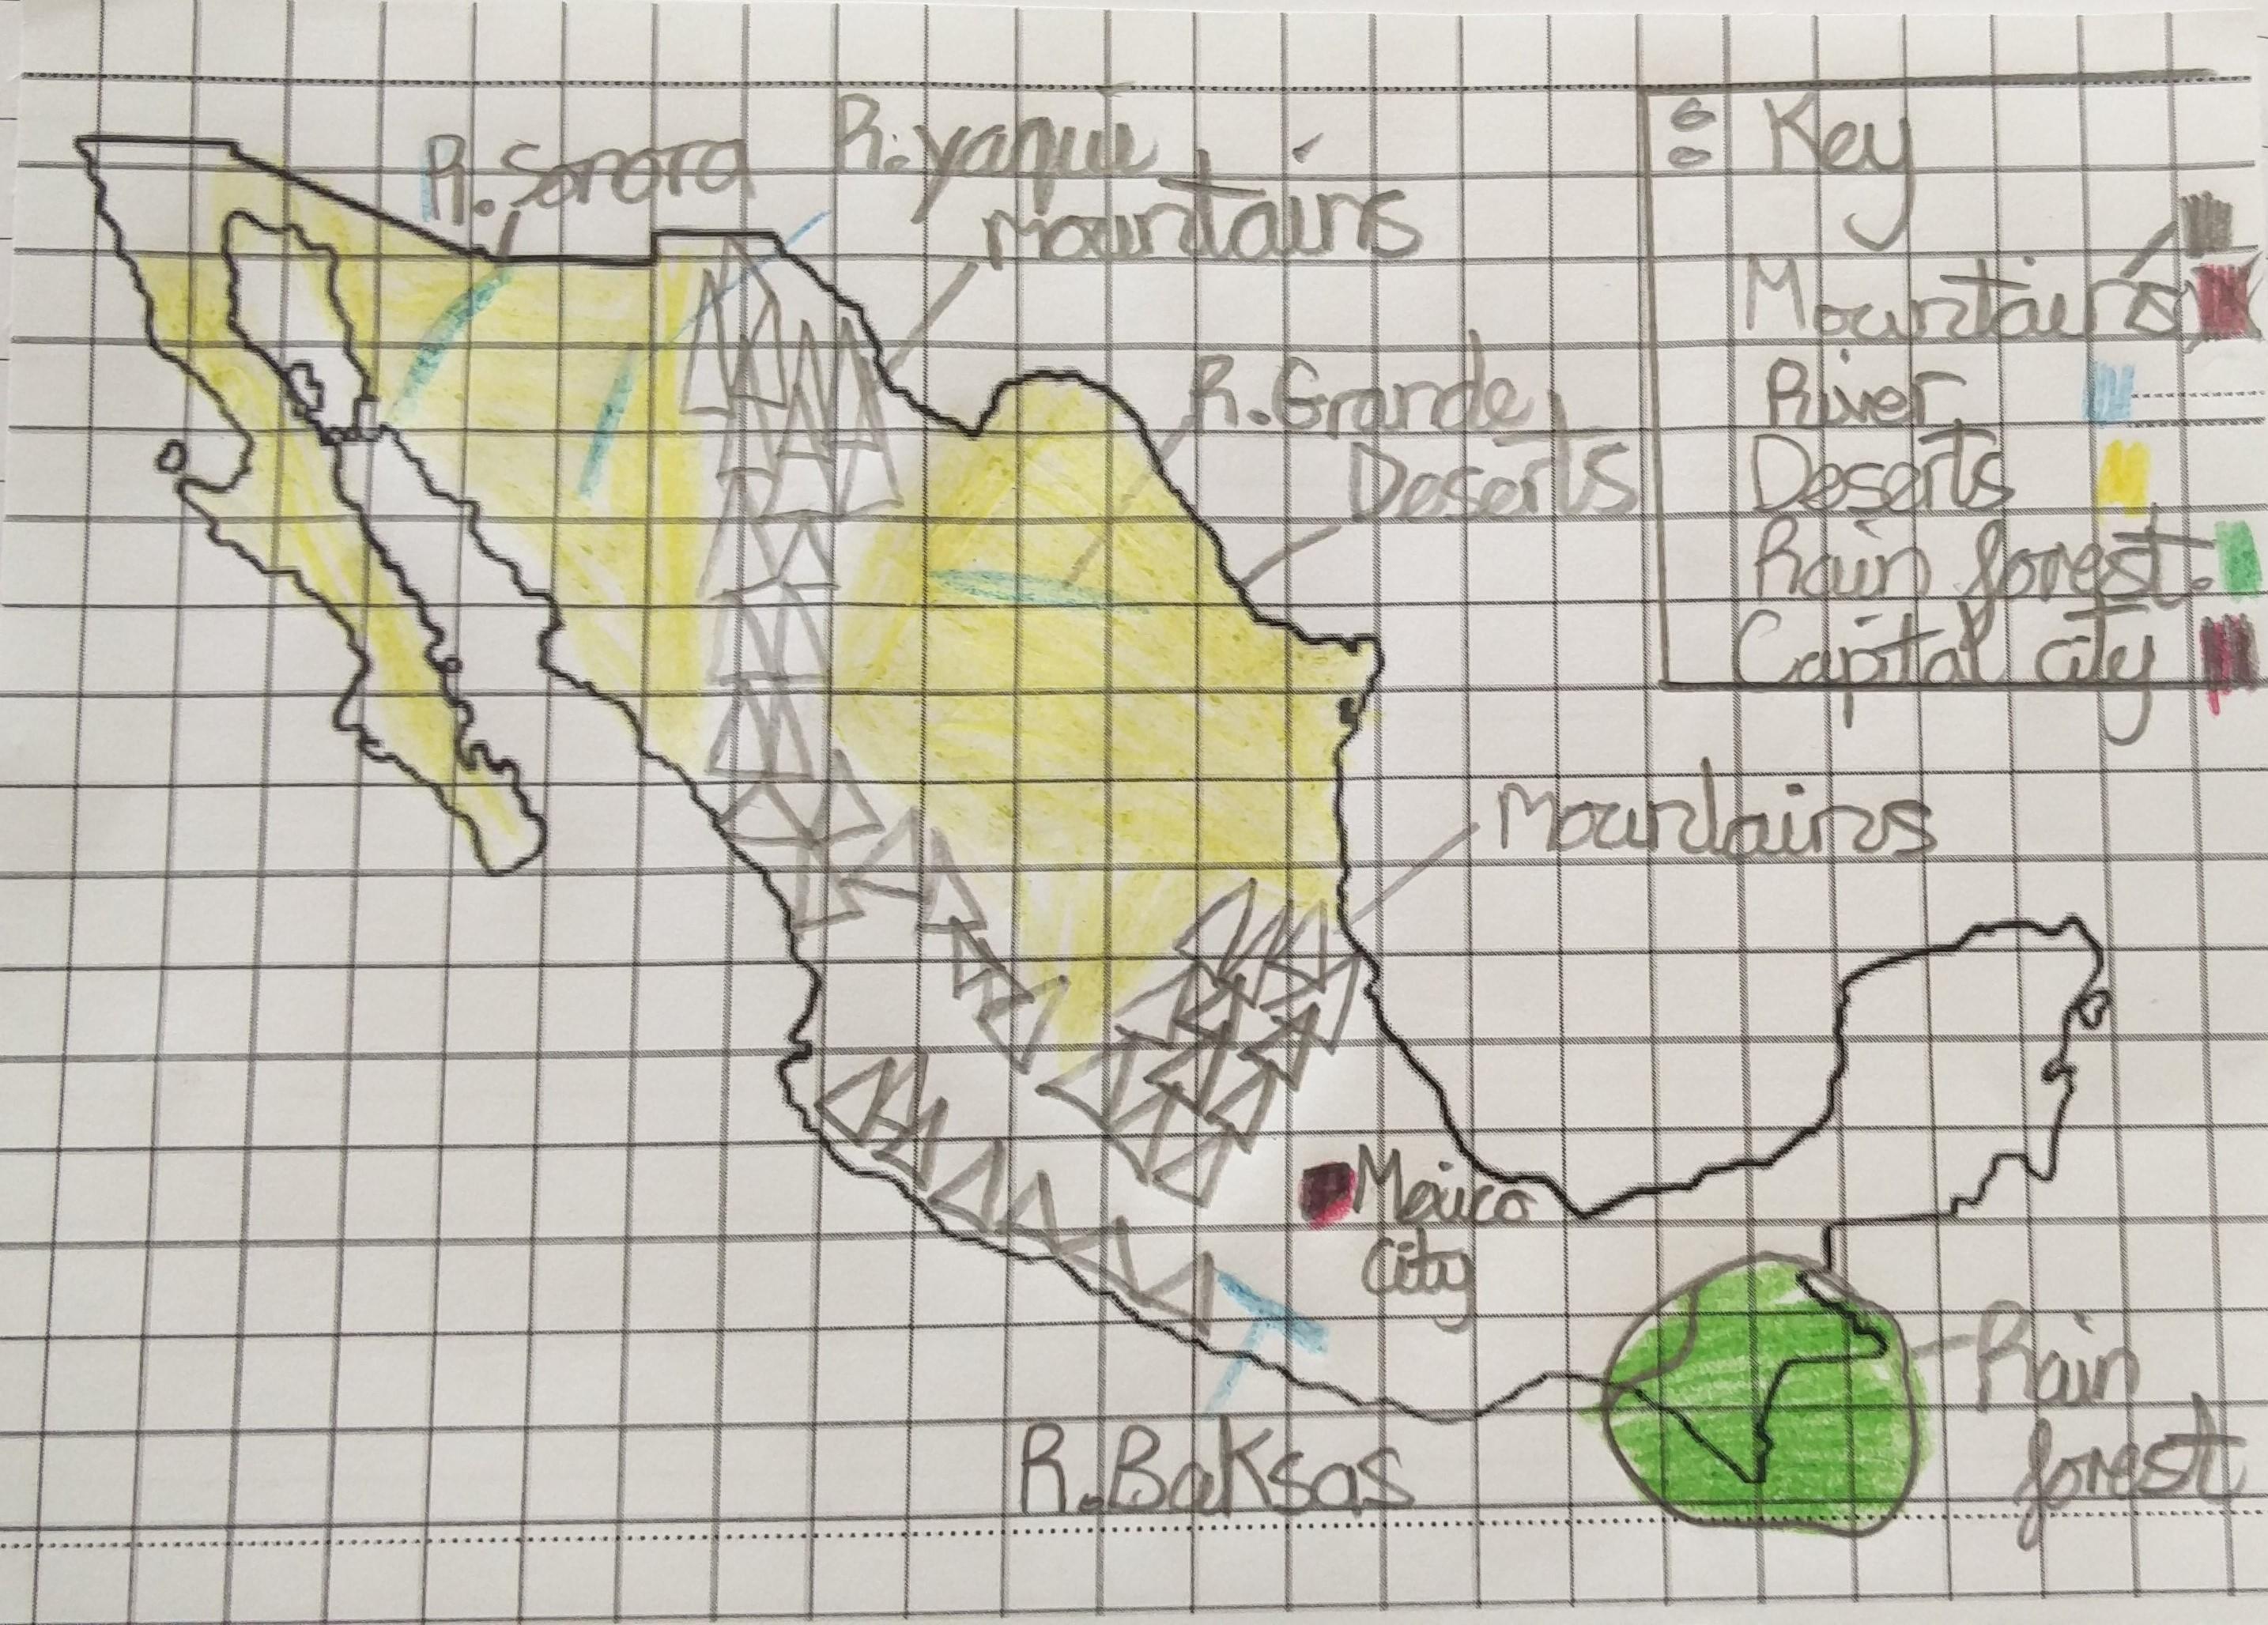 R. Sonora
R. yaqui
mountains
R. Grande
Deserts
Mountains
Mexico
City
Rain
forest
R. Baksas
: Key
Mountains
River
Deserts
Rain forest.
Capital city